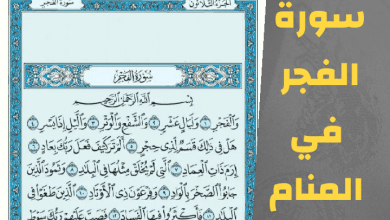 الجزء الثلاثون
سورة الفجر
سورة الفجر
بسم الله الرحمن الرحيم
والفجر ١ وليال عشر ٢ والشفع والوتر ٣ والليل إذا يسر ٤
هل في ذلك قسم لذي حجر ٥ ألم تر كيف فعل ربك بعاد ٦
إرم ذات العماد ٧ التي لم يخلق مثلها في البلاد ٨ وثمود الذين
جابوا الصخر بالواد ٩ وفرعون ذي الأوتاد ١٠ الذين طغوا في
البلاد ١١ فأكثروا فيها الفساد ١٢ فصب عليهم ربك سوط
سورة
الفجر
في
المنام